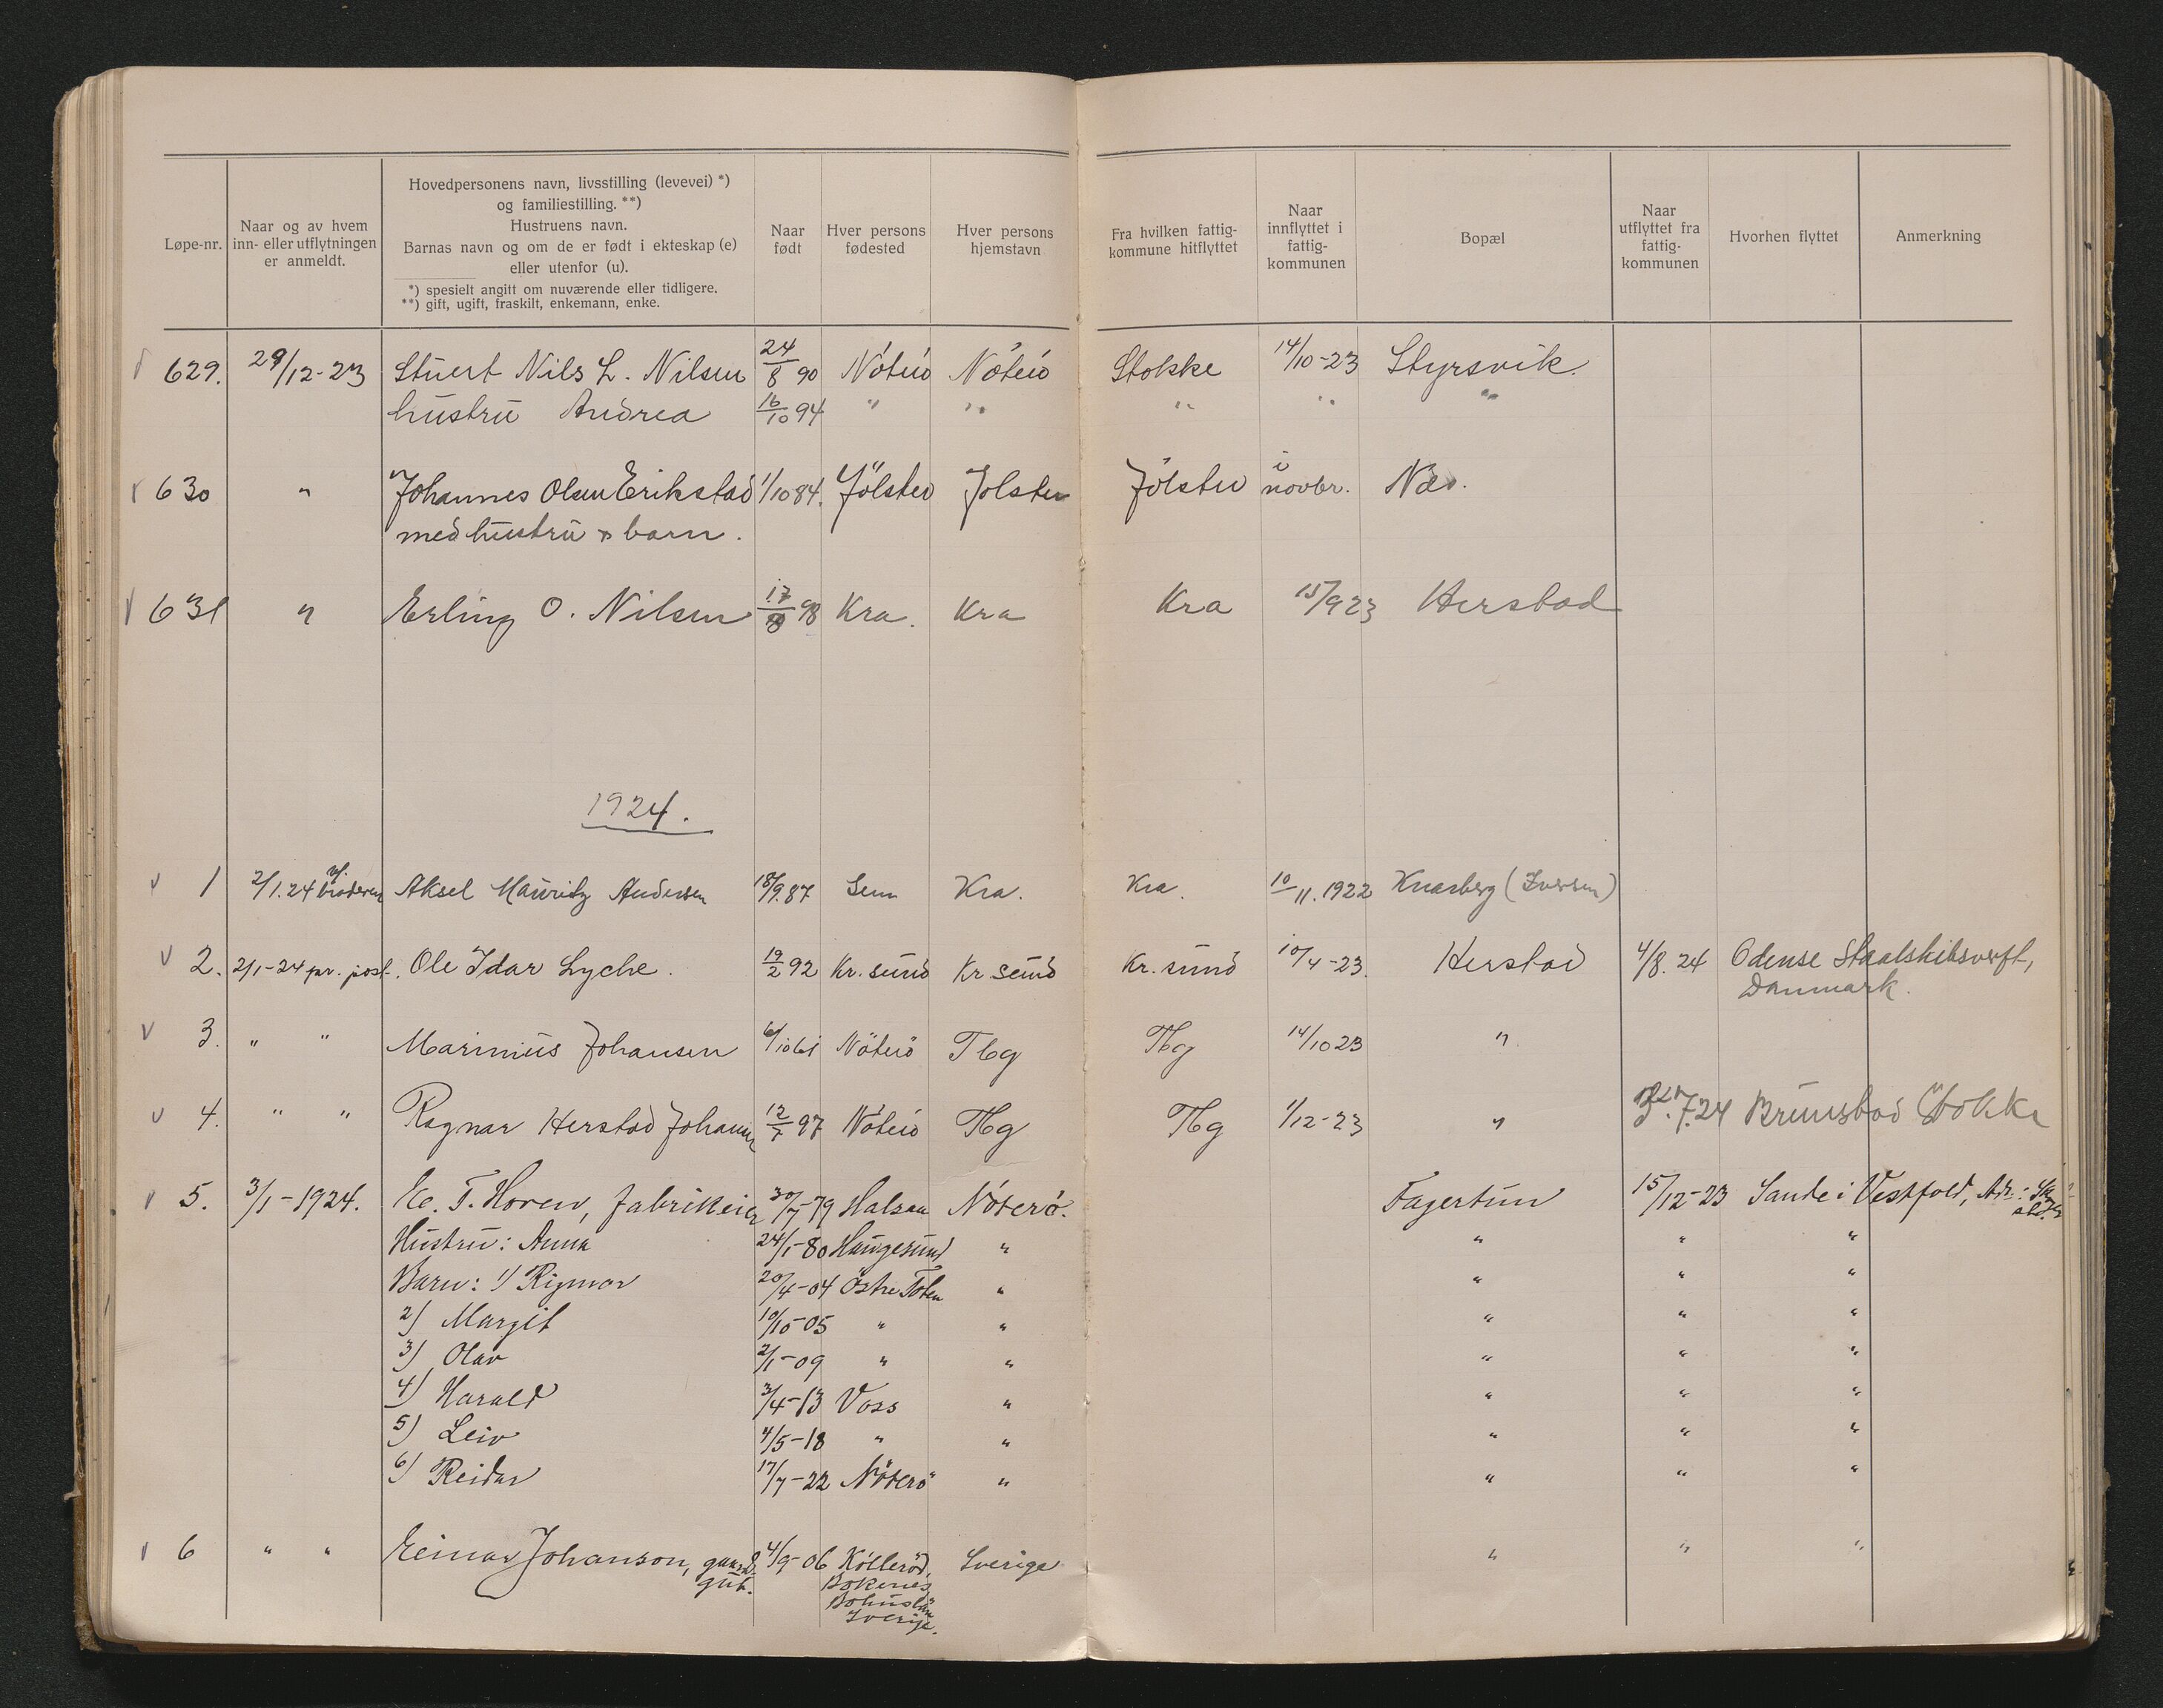 Løpe-nr.
Naar og av hvem
inn- eller utflytningen
er anmeldt.
Hovedpersonens navn, livsstilling (levevei) *)
og familiestilling. **)
Hustruens navn.
Barnas navn og om de er født i ekteskap (e)
eller utenfor (u).
*) spesielt angitt om nuværende eller tidligere.
**) gift, ugift, fraskilt, enkemann, enke.
Naar
født
Hver persons
fødested
Hver persons
hjemstavn
Fra hvilken fattig-
kommune hitflyttet
Naar
innflyttet i
fattig-
kommunen
Bopæl
Naar
utflyttet fra
fattig-
kommunen
Hvorhen flyttet
Anmerkning
629. 29/12-23 Stuert Nils L. Nilsen 24/8 90 Nöterö Nöterö Stokke 14/10-23 Styrsvik
hustru Andrea 16/10 94 " " " " "
630 " Johannes Olsen Erikstad 1/10 84. Jölster Jölster Jölster i novbr. Nes.
med hustru & barn.
631 " Erling O. Nilsen 17/8 98 Kra. Kra Kra 15/9 23 Herstad
1924.
1 2/1.24 v. broderen Aksel Mauritz Andersen 18/9.87 Sem Kra. Kra. 10/11.1922 Knarberg (Iversen)
2. 2/1-24 pr. post. Ole Idar Lyche. 19/2 92 Kr. sund Kr sund Kr. sund 10/4-23. Herstad 4/8. 24 Odense Staalskibsverft,
Danmark.
3. " " Marinius Johansen 6/10 61 Nöterö Tbg Tbg 14/10 23 "
4. " " Ragnar Herstad Johansen 12/7 97 Nöterö Tbg Tbg 1/12-23 " 7.24 Brunstad Stokke
5. 3/1-1924. K. T. Horen, fabrikeier 30/7-79 Halsaa Nöterö. Fagertun 15/12-23 Sande i Vestfold, Adr.:
Hustru: Anna 24/1-80 Haugesund " " " "
Barn: 1) Rigmor 20/4-04 Östre Toten " " " "
2) Margit 10/10-05 " " " " "
3) Olav 2/1-09 " " " " "
4) Harald 3/4-13 Voss " " " "
5) Leiv 4/5-18 " " " " "
6) Reidar 17/7-22 Nöterö " " " "
6 " " Einar Johanson, gaards- 4/9-06 Kölleröd, Sverige " " "
gut. Bokenes,
Bohuslän
Sverige.